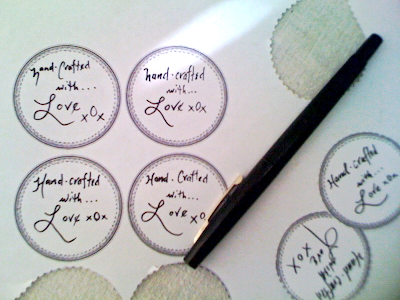 hand-Crafted
with...
Love xOx
hand-crafted
with...
Love xOx
Hand-crafted
with...
Love xOx
Hand-Crafted
with...
Love xO
Hand-crafted
with...
Love xOx
Hand-Crafted
with
Love
xOx